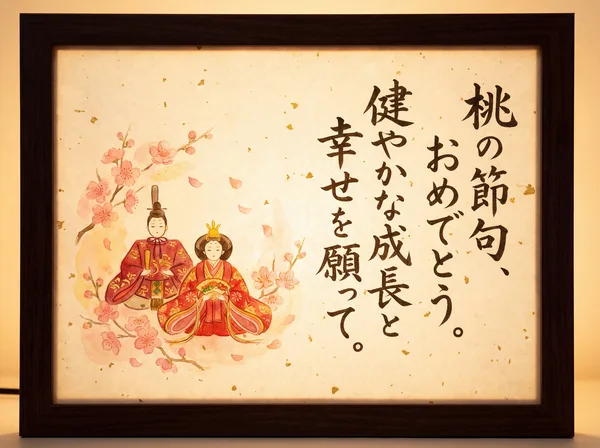 桃の節句、
おめでとう。
健やかな成長と
幸せを願って。